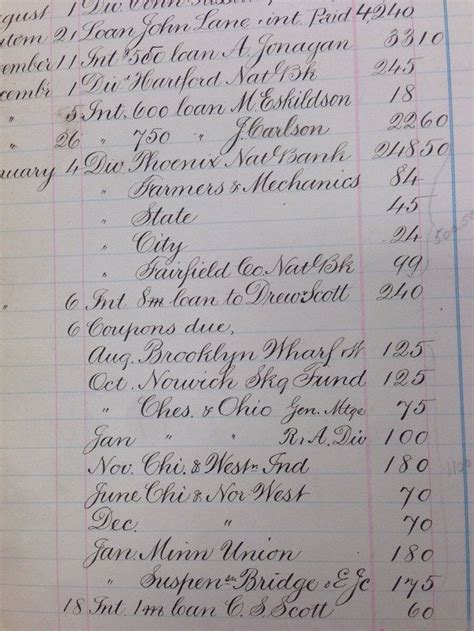 ugust 1 Div. Conn 4
tem 21 Loan John Lane & int. Paid 4,240
ember 11 Int $550 loan A. Jonagan 33 10
cembr 1 Div. Hartford Nat Bk 245
" 5 Int. 600 loan M Eskildson 18
" 26 " 750 " J. Carlson 22 60
nuary 4 Div. Phoenix Nat Bank 248 50
" Farmers & Mechanics 84
" State 45
" City 24
" Fairfield Co. Nat Bk 99
" 6 Int 8m loan to Drew & Scott 240
6 Coupons due,
Aug. Brooklyn Wharf 125
Oct. Norwich Skg Fund 125
" Ches. & Ohio Gen. Mtge 75
Jan " " R. & A. Div 100
Nov. Chi. & Westn Ind 180
June Chi & Nor West 70
Dec. " 70
Jan. Minn Union 180
" Suspensn Bridge & E Jc 175
18 Int. 1m loan C. S. Scott 60